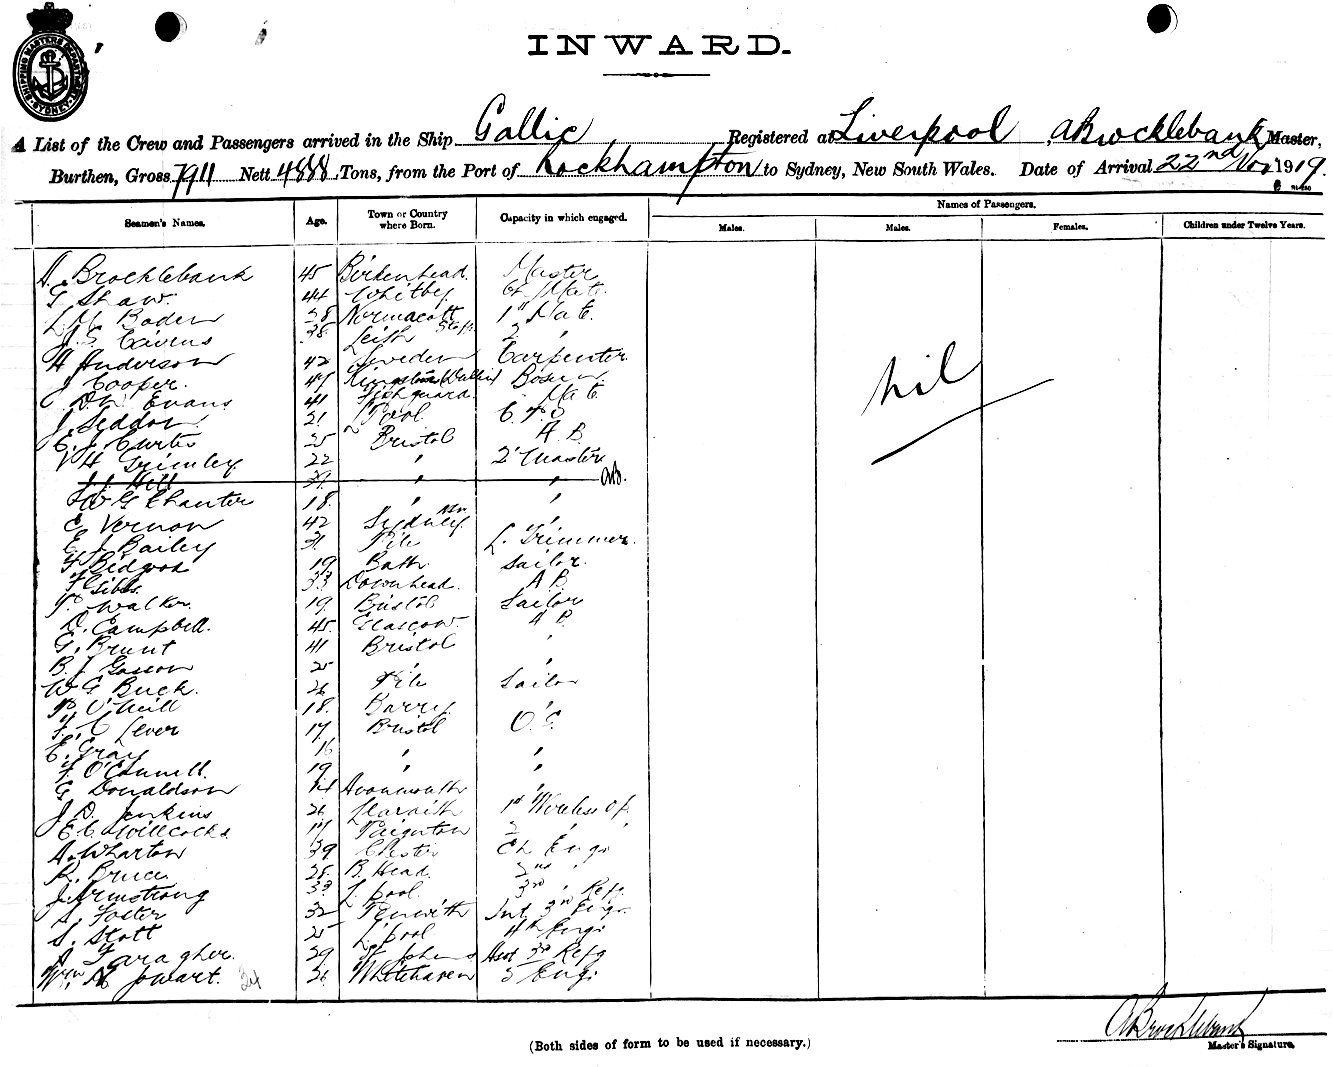 SHIPPING MASTERS DEPARTMENT SYDNEY
INWARD.
A List of the Crew and Passengers arrived in the Ship Gallic Registered at Liverpool, A Brocklebank Master,
Burthen, Gross 7911 Nett 4888 Tons, from the Port of Rockhampton to Sydney, New South Wales. Date of Arrival 22nd Nov 1919.
Seamen's Names. Age. Town or Country where Born. Capacity in which engaged. Names of Passengers.
Males. Males. Females. Children under Twelve Years.
A. Brocklebank 45 Birkenhead. Master
G Shaw. 44 Whitby Ch Mate.
L. M. Boden 28 Normacott Staffs 1st Mate.
J. S. Cairns 38 Leith 2 "
H Anderson 42 Sweden Carpenter.
J Cooper. 47 Kingston Bosun.
D. W. Evans 41 Fishguard. Mate
J. Seddon 21 L'Pool.
E. J. Curtis 25 Bristol A. B.
V H Grimley 22 " 2
J. J. Hill 39 " " AB.
W G Chanter 18. " "
E Vernon 42 Sydney NSW "
E J Bailey 31 Pile L. Trimmer.
F Bidgood 19 Bath Sailor.
F Gibbs. 33 Downhead. A B.
P. Walker. 19. Bristol Sailor
D. Campbell. 45. Glascow. A B.
G. Brunt 41 Bristol "
B. J. Gasson 25 " "
W G Buck. 26 Pile Sailor
P O'Neill 18. Barry. "
F. C Lever 17 Bristol O. S.
E. Gray 16 " "
F O'Connell. 19 " "
G Donaldson Avonmouth "
J D. Jenkins 26 1st Wireless Op.
E. C Willcocks 17 Paignton 2 " "
A. Wharton 39 Chester Ch Engr
R. Bruce 28. B. Head. 2nd "
J. Armstrong 33 L'pool. 3rd " Refg
S. Foster 32 Penwith Int 3rd Engr.
S. Stott 25 L'pool 4th Engr
A Faragher. 29 St Johns Asst 3rd Refg
Wm. A Jowart. 24 26 Whitehaven 5 Engr
nil
A Brocklebank
Master's Signature.
(Both sides of form to be used if necessary.)